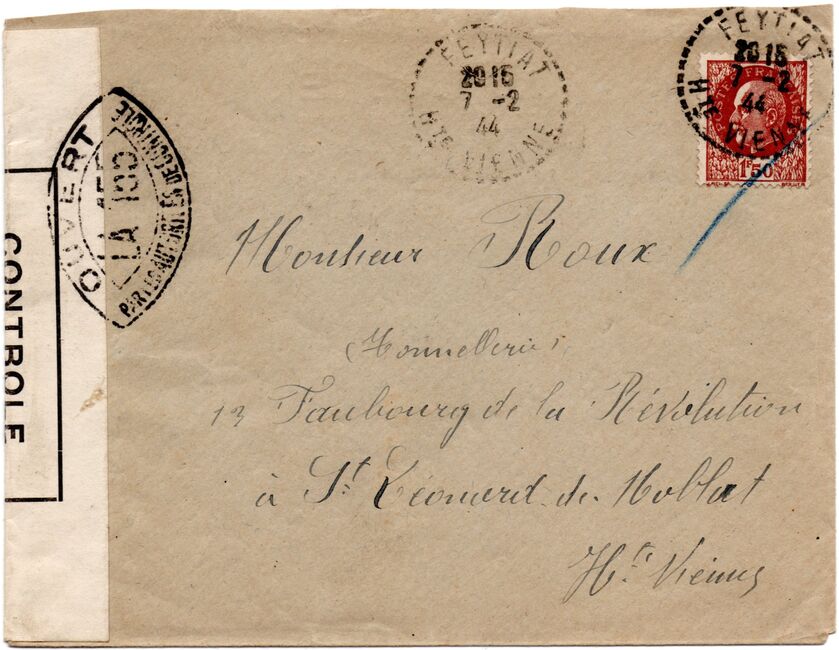 FEYTIAT
2015
7 -2
44
HTE VIENNE
FEYTIAT
2015
7 -2
44
HTE VIENNE
POSTES FRANÇAISES
1F50
OUVERT
LA 100
PAR LES AUTORITÉS DE CONTROLE
CONTROLE
Monsieur Roux
(Tonnellerie)
13 Faubourg de la Révolution
à St Léonard-de-Noblat
Hte Vienne